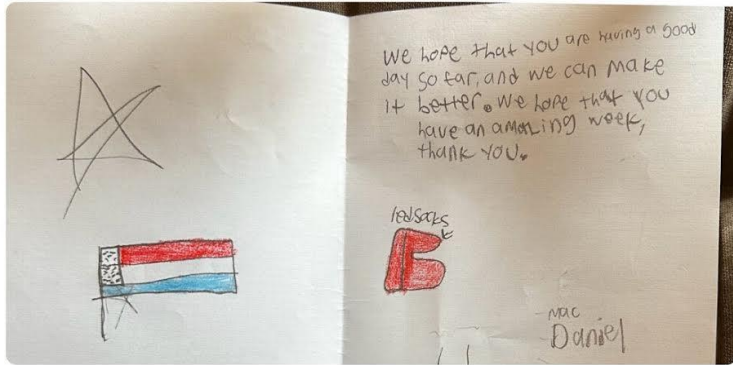 We hope that you are having a good
day so far, and we can make
it better. We hope that you
have an amazing week,
thank you.
red socks
Mac
Daniel